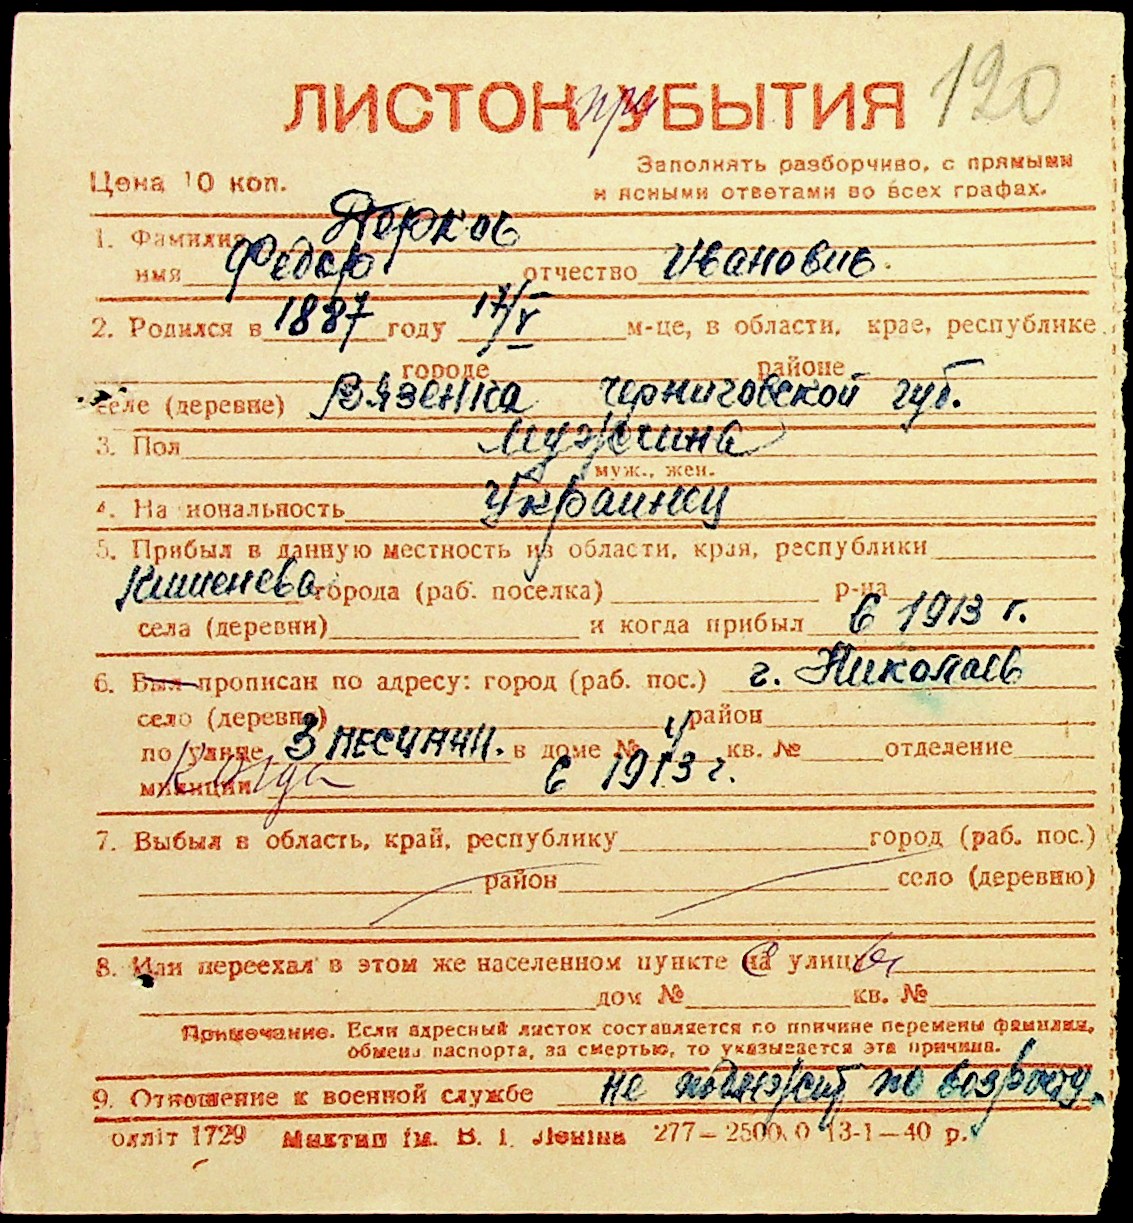 120
ЛИСТОК при УБЫТИЯ
Цена 10 коп.
Заполнять разборчиво, с прямыми
и ясными ответами во всех графах.
1. Фамилия
имя Федор отчество Иванович
2. Родился в 1887 году 17/V м-це, в области, крае, республике
городе районе
селе (деревне) Вязенка Черниговской губ.
3. Пол Мужчина
муж., жен.
4. Национальность Украинец
5. Прибыл в данную местность из области, края, республики
Кишенева города (раб. поселка) р-на
села (деревни) и когда прибыл в 1913 г.
6. Был прописан по адресу: город (раб. пос.) г. Николаев
село (деревня) район
по улице 3 песчан. в доме № 4 кв. № отделение
милиции когда в 1913 г.
7. Выбыл в область, край, республику город (раб. пос.)
район село (деревню)
8. Или переехал в этом же населенном пункте на улицу
дом № кв. №
Примечание. Если адресный листок составляется по причине перемены фамилии,
обмена паспорта, за смертью, то указывается эта причина.
9. Отношение к военной службе не подлежит по возрасту.
олліт 1729 Миктип ім. В. І. Леніна 277—2500.0 13-1—40 р.